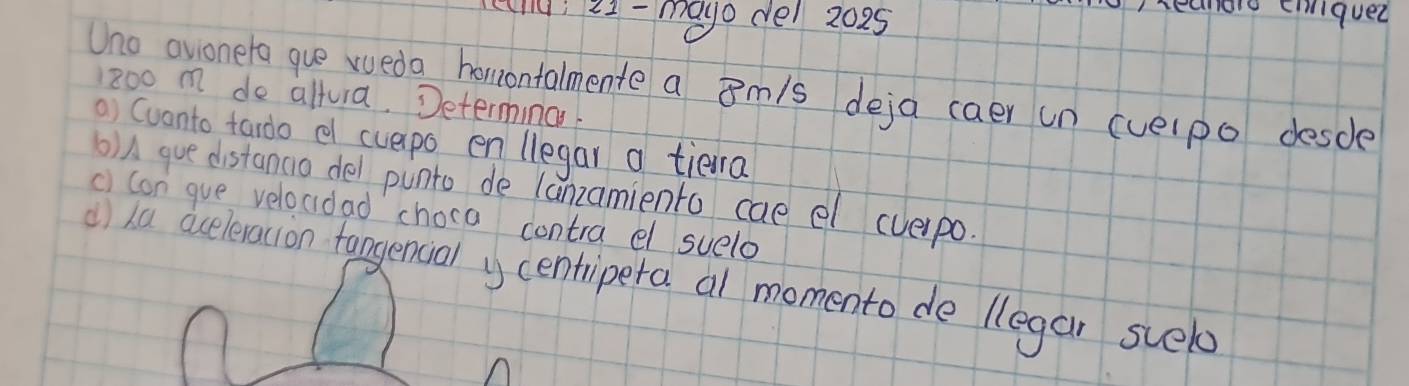 21-mayo del 2025
Una avioneta que vueda horizontalmente a 8m/s deja caer un cuerpo desde
1800 m de altura. Determinar.
a) Cuanto tardo el cuerpo en llegar a tierra
b) A que distancia del punto de lanzamiento cae el cuerpo.
c) Con que velocidad choca contra el suelo
d) La aceleracion tangencial y centripeta al momento de llegar suelo